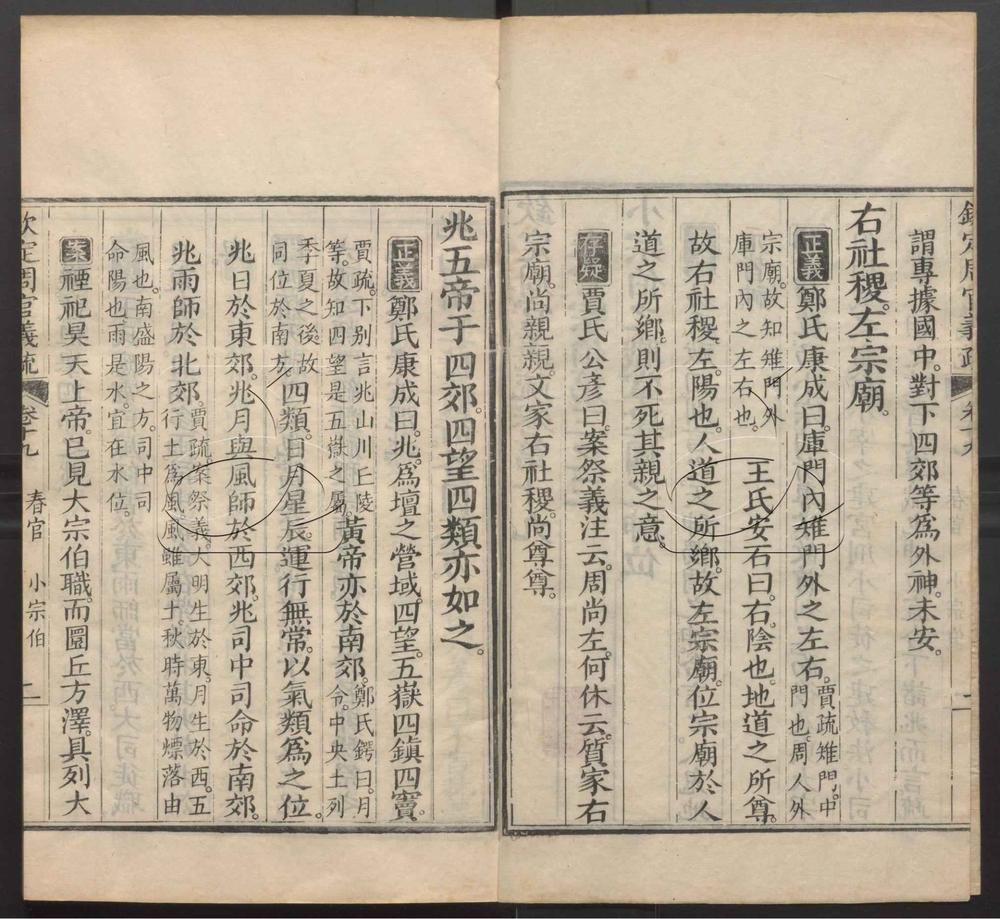 謂專據國中對下四郊等爲外神未安。
右社稷。左宗廟。
正義 鄭氏康成曰。庫門內雉門外之左右。賈疏雉門。中門也。周人外
宗廟。故知雉門外庫門內之左右也。 王氏安石曰。右。陰也。地道之所尊。
故右社稷。左。陽也。人道之所鄉。故左宗廟。位宗廟於人
道之所鄉。則不死其親之意。
存疑 賈氏公彥曰。案祭義注云。周尚左。何休云。質家右
宗廟。尚親親。文家右社稷。尚尊尊。
兆五帝于四郊。四望四類亦如之。
正義 鄭氏康成曰。兆。爲壇之營域。四望。五嶽四鎮四竇。
賈疏。下别言兆山川丘陵等。故知四望是五嶽之屬。黃帝亦於南郊。鄭氏鍔曰。月令。中央土列
季夏之後。故同位於南方。四類。日月星辰。運行無常。以氣類爲之位。
兆日於東郊。兆月與風師於西郊。兆司中司命於南郊。
兆雨師於北郊。賈疏。案祭義。大明生於東。月生於西。五行土爲風。風雖屬土。秋時萬物燥落由
風也。南盛陽之方。司中司命陽也。雨是水。宜在水位。
案 禋祀昊天上帝。已見大宗伯職。而圜丘方澤。具列大
欽定周官義疏 卷十九 春官 小宗伯 二